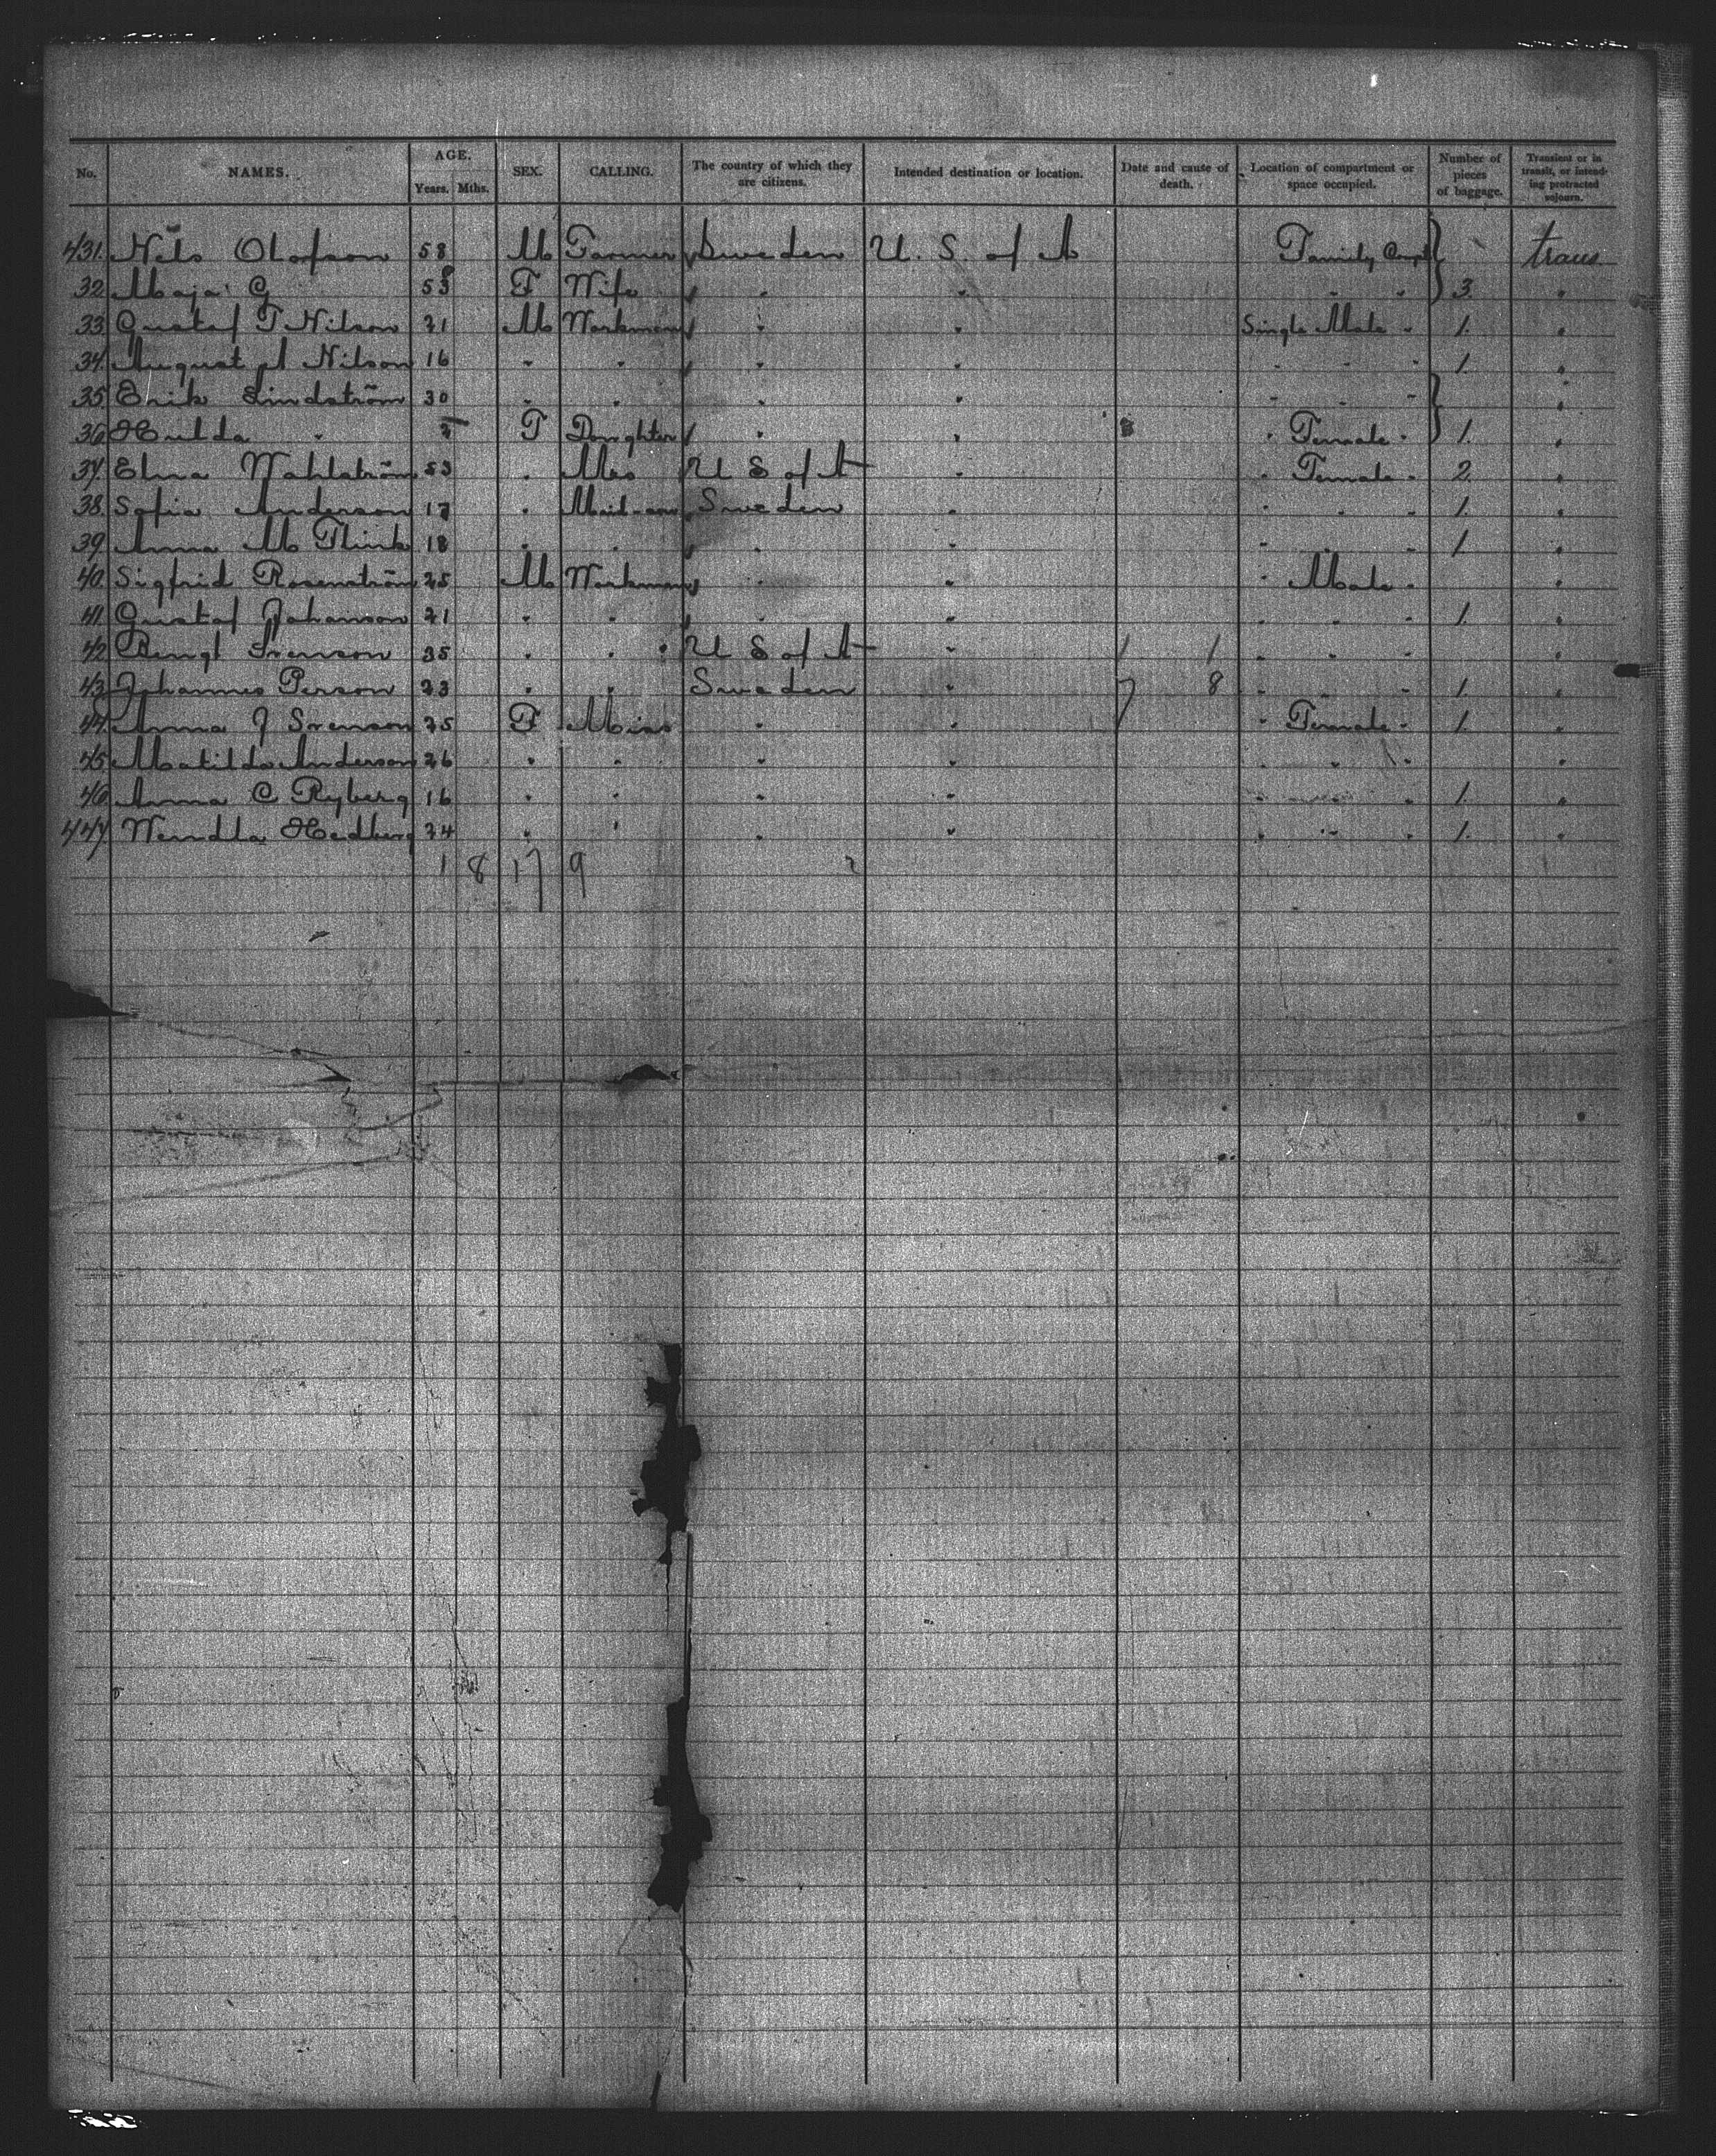 No. NAMES. AGE. Years. Mths. SEX. CALLING. The country of which they are citizens. Intended destination or location. Date and cause of death. Location of compartment or space occupied. Number of pieces of baggage. Transient or in transit, or intending protracted sojourn.
431. Nils Olofson 58 M Farmer Sweden U. S. of A Family Compt trans.
32 Maja G 58 F Wife " " " " 3. "
33 Gustaf T Nilson 21 M Workman " " Single Male " 1. "
34. August A Nilson 16 " " " " " " " 1. "
35 Erik Lindström 30 " " " " " " " "
36 Hulda " F Daughter " " " Female " 1. "
37. Elna Wahlström 53 " Mrs U S of A " " Female " 2. "
38. Sofia Anderson 17 " Maid-serv Sweden " " " " 1. "
39 Anna M Flink 18 " " " " " " " 1 "
40. Sigfrid Rosenström 25 M Workman " " " Male " "
41. Gustaf Johanson 21 " " " " " " " 1. "
42 Bengt Svenson 35 " " U S of A " 1 1 " " " "
43 Johannes Person 23 " " Sweden " 7 8 " " " 1. "
44. Anna J Svenson 25 F Miss " " " Female " 1. "
45 Matilda Anderson 26 " " " " " " " "
46 Anna C Ryberg 16 " " " " " " " 1. "
447. Wendla Hedberg 24 " " " " " " " 1. "
1 8 17 9